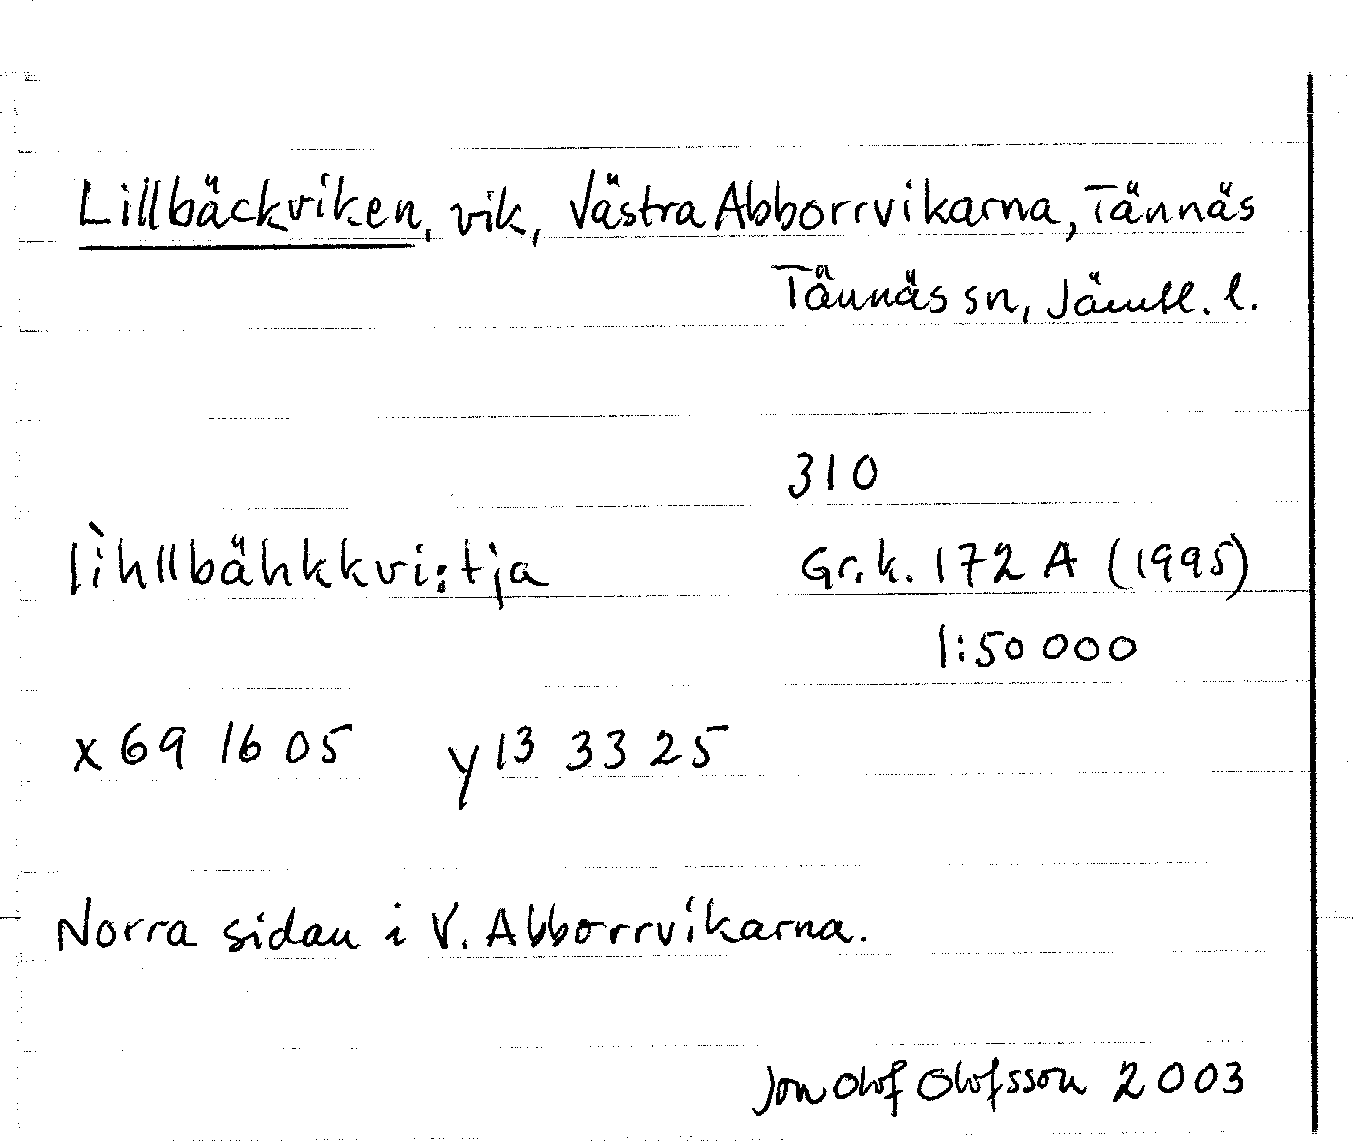 Lillbäckviken, vik, Västra Abborrvikarna, Tännäs
Tännäs sn, Jämtl. l.
310
lìhllbähkkvi:tja Gr.k. 172 A (1995)
1:50 000
x 69 16 05 y 13 33 25
Norra sidan i V. Abborrvikarna.
Jon Olof Olofsson 2003